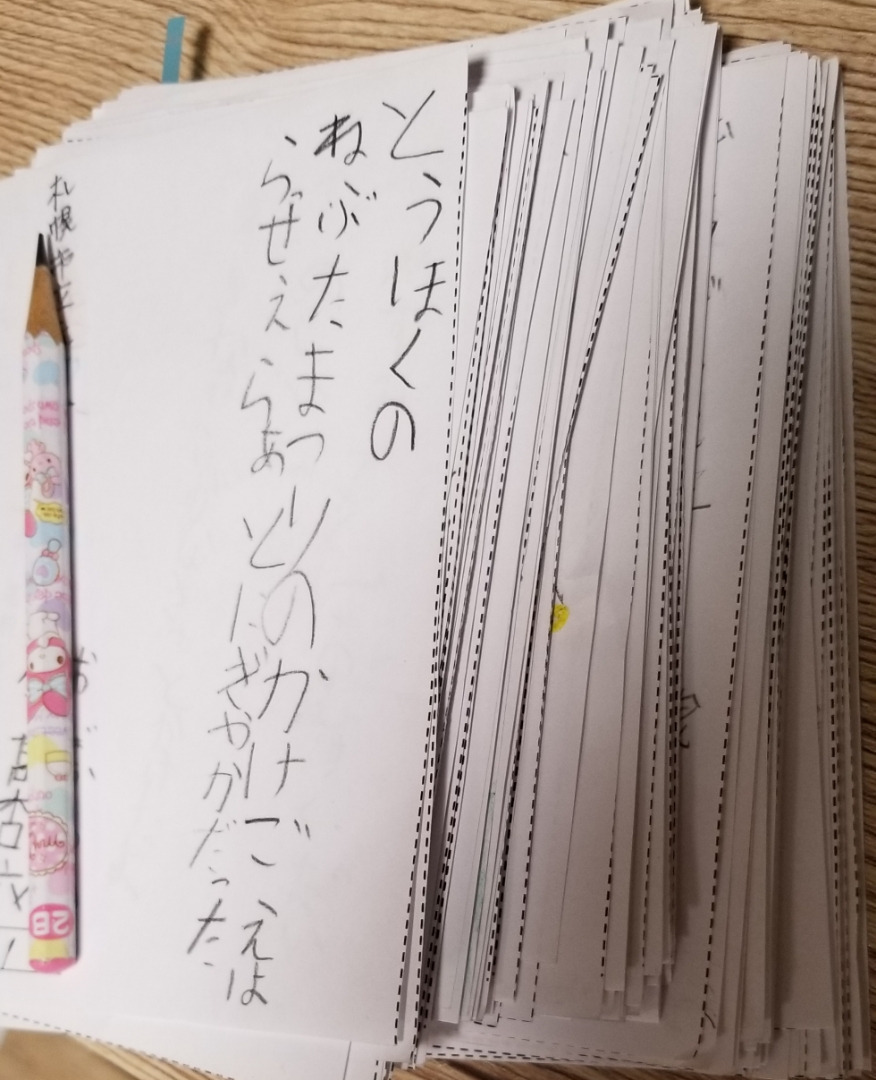 とうほくの
ねぶたまつりのかけごえは
らっせぇらあとにぎやかだった
札幌市立
2B